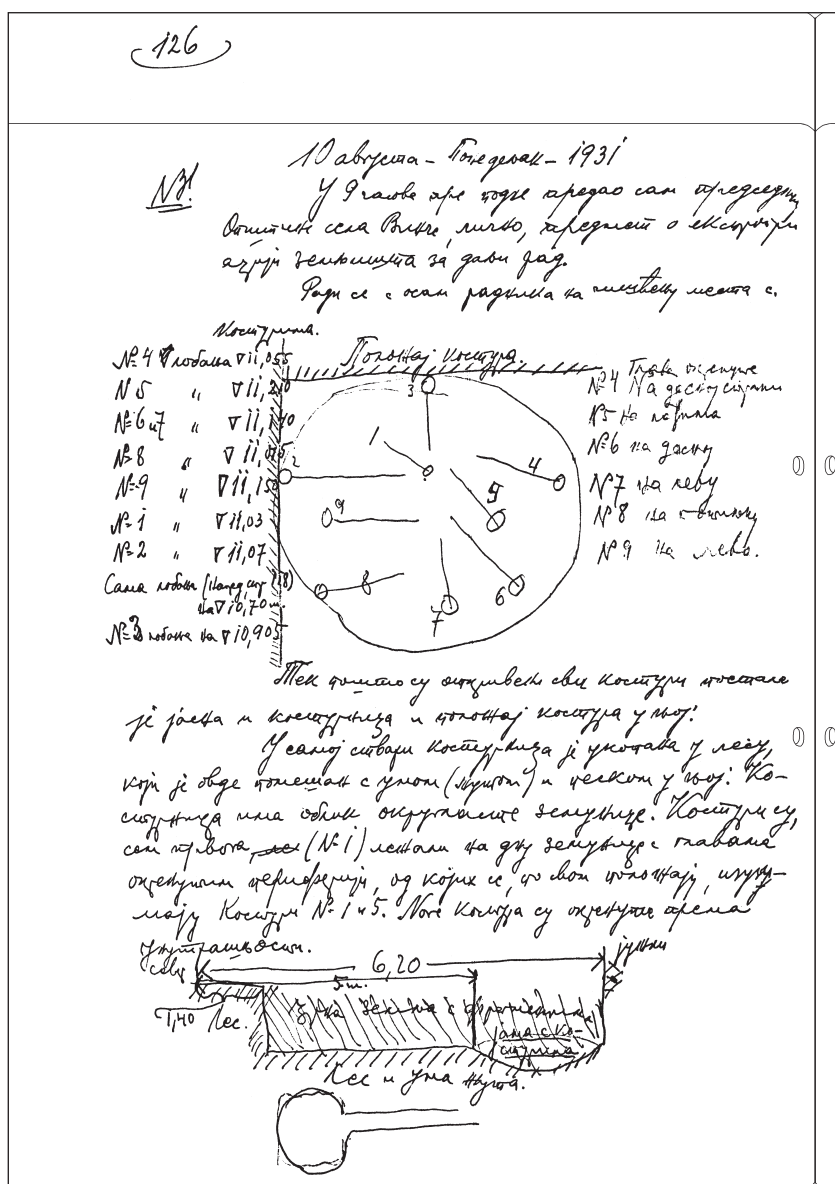 126
10 августа – Понедељак – 1931
№3!
У 9 часова пре подне предао сам председнику
Општине села Винче, лично, предмет о експропри
ацији земљишта за даљи рад.
Ради се с осам радника на месту с.
костурима.
Положај костура.
№ 4 лобања ▽ 11,055
№ 5 " ▽ 11,210
№ 6 и 7 " ▽ 11,110
№ 8 " ▽ 11,075
№ 9 " ▽ 11,150
№ 1 " ▽ 11,03
№ 2 " ▽ 11,07
Сама лобања
на ▽ 10,70 м.
№ 3 лобања на ▽ 10,905
Глава окренуте
№ 4 На десну страну
№ 5 На
№ 6 на десну
№ 7 на леву
№ 8 на
№ 9 на лево.
3
1
2
4
5
9
8
7
6
Тек пошто су откривени сви костури постала
је јасна и костурница и положај костура у њој!
У самој ствари костурница је укопана у лесу,
који је овде помешан с умом (жутом) и песком у њој. Ко-
стурница има облик округласте земунице. Костури су,
сем првога, (№ 1) лежали на дну земунице с главама
окренутим периферији, од којих се, по свом положају, изузи-
мају Костури № 1 и 5. Ноге костура су окренуте према
унутрашњости.
север
6,20
јужни
5 m.
1,40
Лес.
земља с
јама с ко-
стурима
Лес и ума жута.